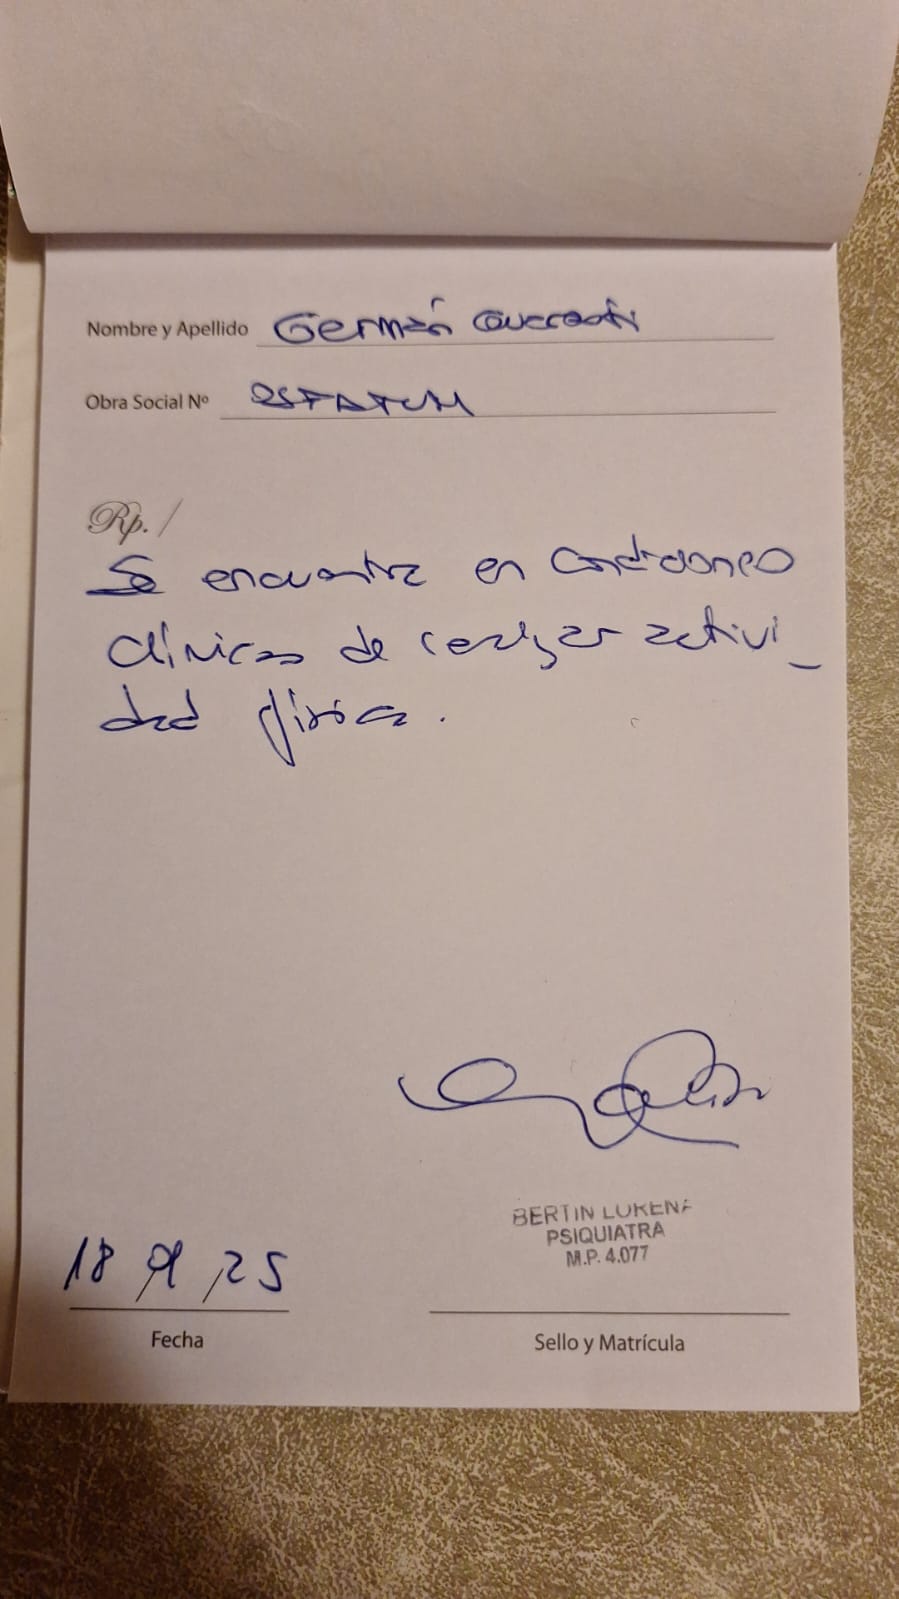 Nombre y Apellido Germán
Obra Social Nº OSPATCA
Rp./
Se encuentra en condiciones
clínicas de realizar activi_
dad física.
BERTIN LORENA
PSIQUIATRA
M.P. 4.077
18/9/25
Fecha
Sello y Matrícula